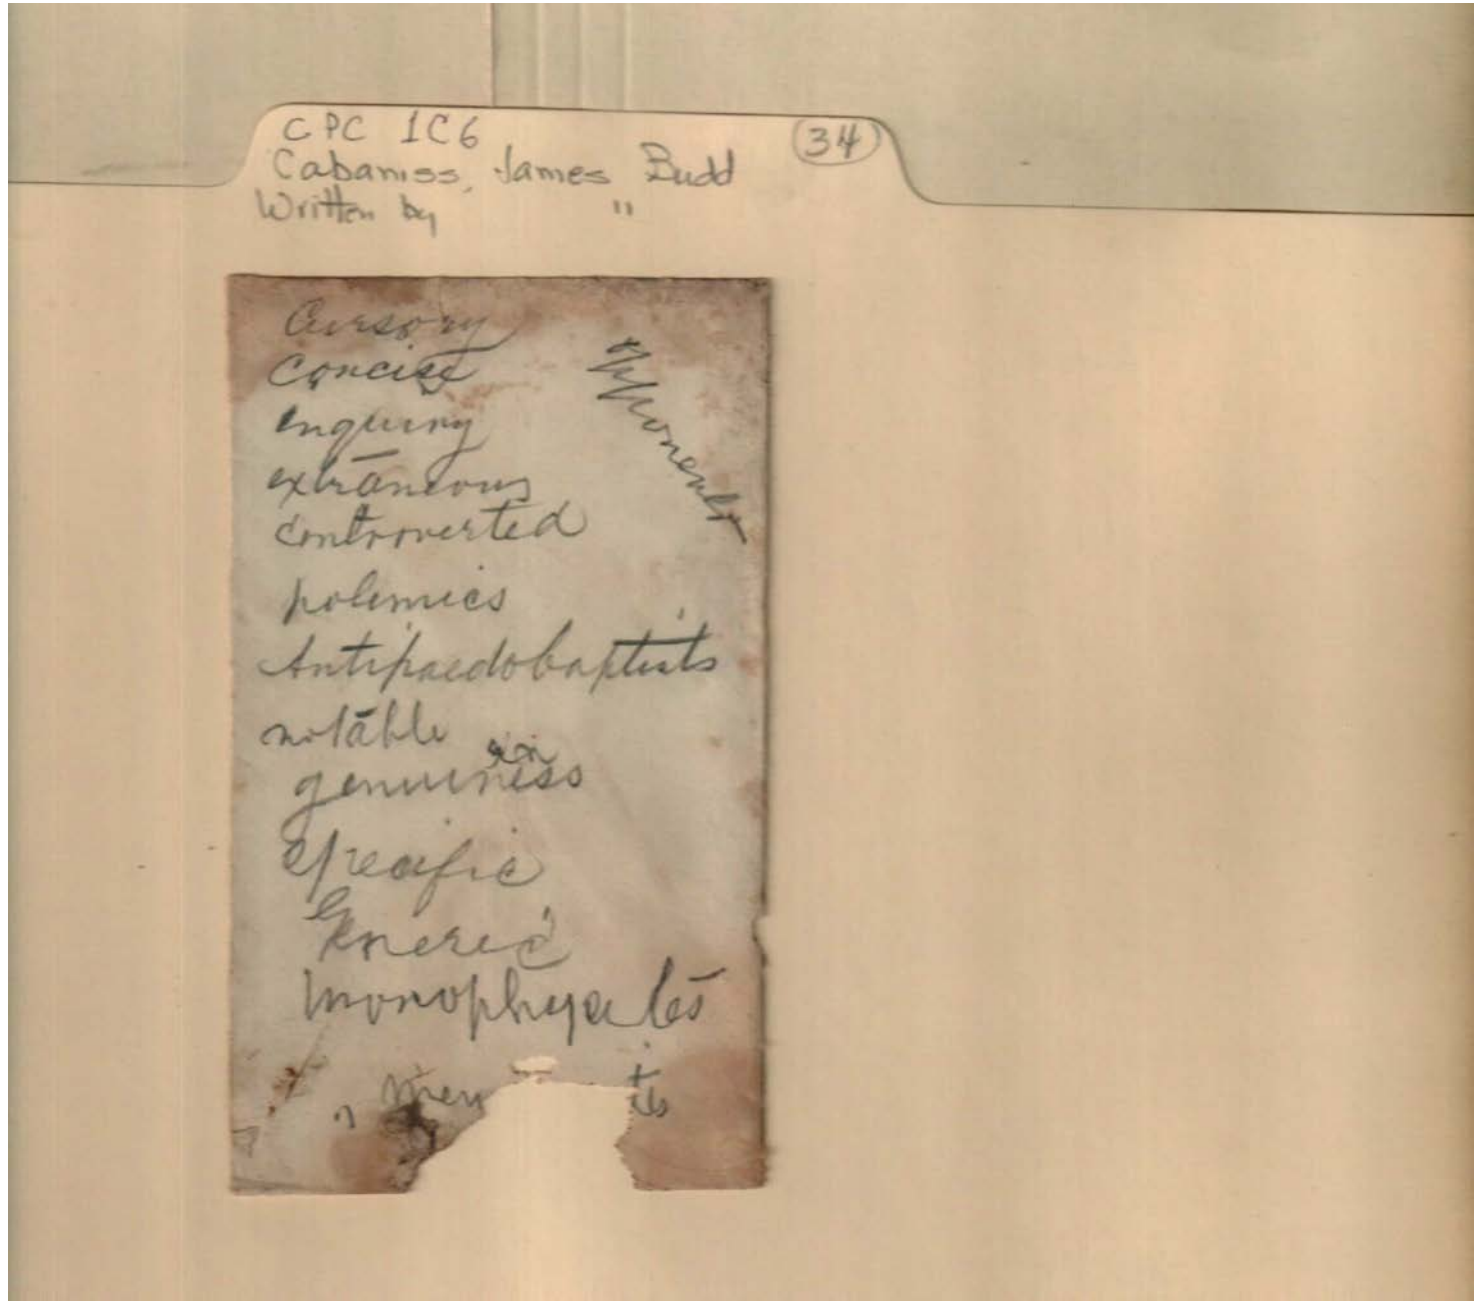 CPC 1C6
Cabaniss, James Budd
(34)
Written by "
Cursory
Concise
opponents
enquiry
extrāneous
controverted
polemics
Antipaedobaptists
notāble
genuiness
Specific
Generic
Monophysites